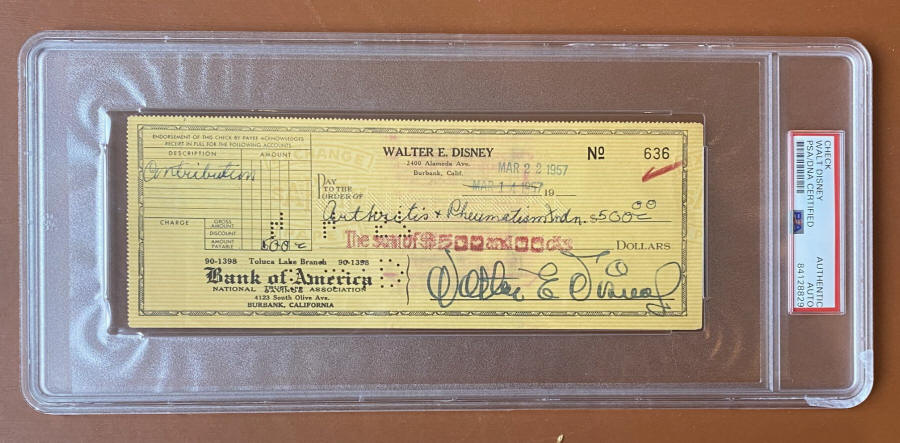 ENDORSEMENT OF THIS CHECK BY PAYEE ACKNOWLEDGES
RECEIPT IN FULL FOR THE FOLLOWING ACCOUNTS.
DESCRIPTION AMOUNT
Contribution
CHARGE
GROSS AMOUNT
DISCOUNT
AMOUNT PAYABLE
WALTER E. DISNEY
2400 Alameda Ave.
Burbank, Calif.
No 636
MAR 22 1957
MAR 14 1957 19
PAY TO THE ORDER OF
Arthritis & Rheumatism Fndn. $500 00
The sum of $500 and 00 cts
DOLLARS
90-1398 Toluca Lake Branch 90-1398
Bank of America
NATIONAL TRUST AND SAVINGS ASSOCIATION
4123 South Olive Ave.
BURBANK, CALIFORNIA
Walter E Disney
EXCHANGE
CHECK
WALT DISNEY
PSA/DNA CERTIFIED
PSA
AUTHENTIC
AUTO
84128829